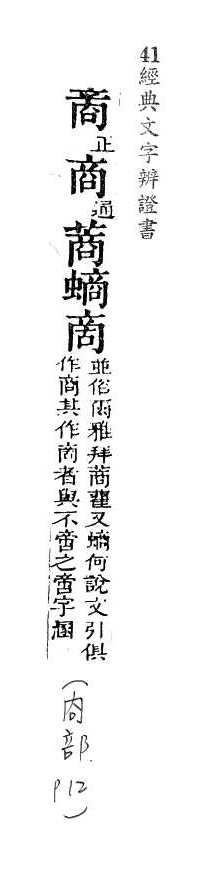 41經典文字辨證書
正
商通
蔏螪啇
並俗爾雅拜蔏藋又螪何說文引俱
作商其作啇者與不啻之啻字溷
(㕯部 P12)